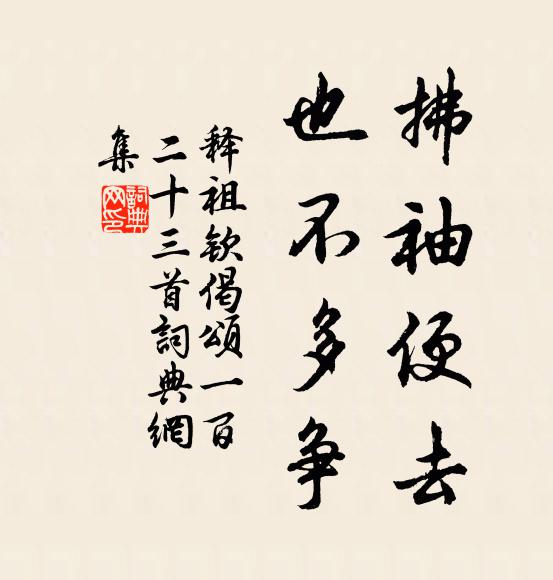 拂袖便去
也不多争
释祖钦偈颂一百
二十三首詞典網
集
詞典
网印